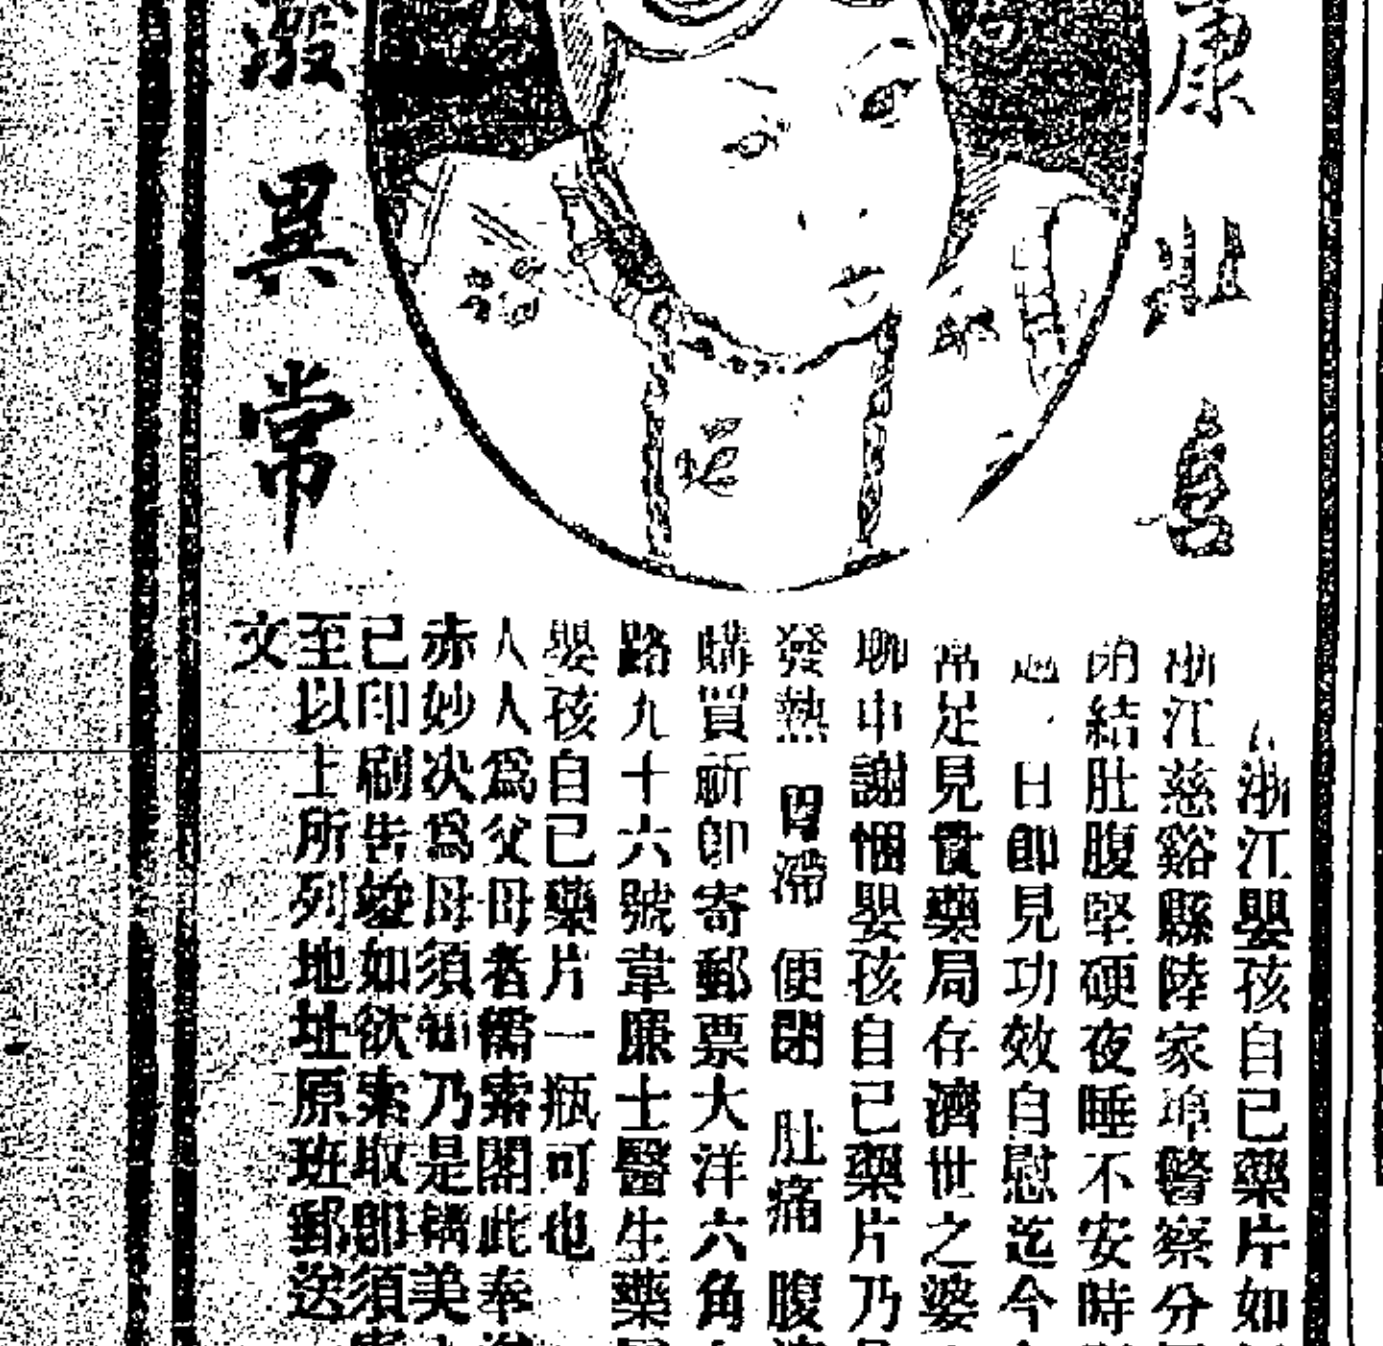 康壯
浙江嬰孩自己藥片如
浙江慈谿縣陸家埠警察分
閉結肚腹堅硬夜睡不安時
一日即見功效自慰迄今
常足見貴藥局存濟世之婆
聊申謝悃嬰孩自己藥片乃
發熱 胃滯 便閉 肚痛 腹
購買祈卽寄郵票大洋六角
路九十六號韋廉士醫生藥
嬰孩自己藥片一瓶可也
人人爲父母者需索閱此奉
赤妙決爲母須知乃是精美
已印刷告竣如欲索取卽須
至以上所列地址原班郵送
文
潑異常